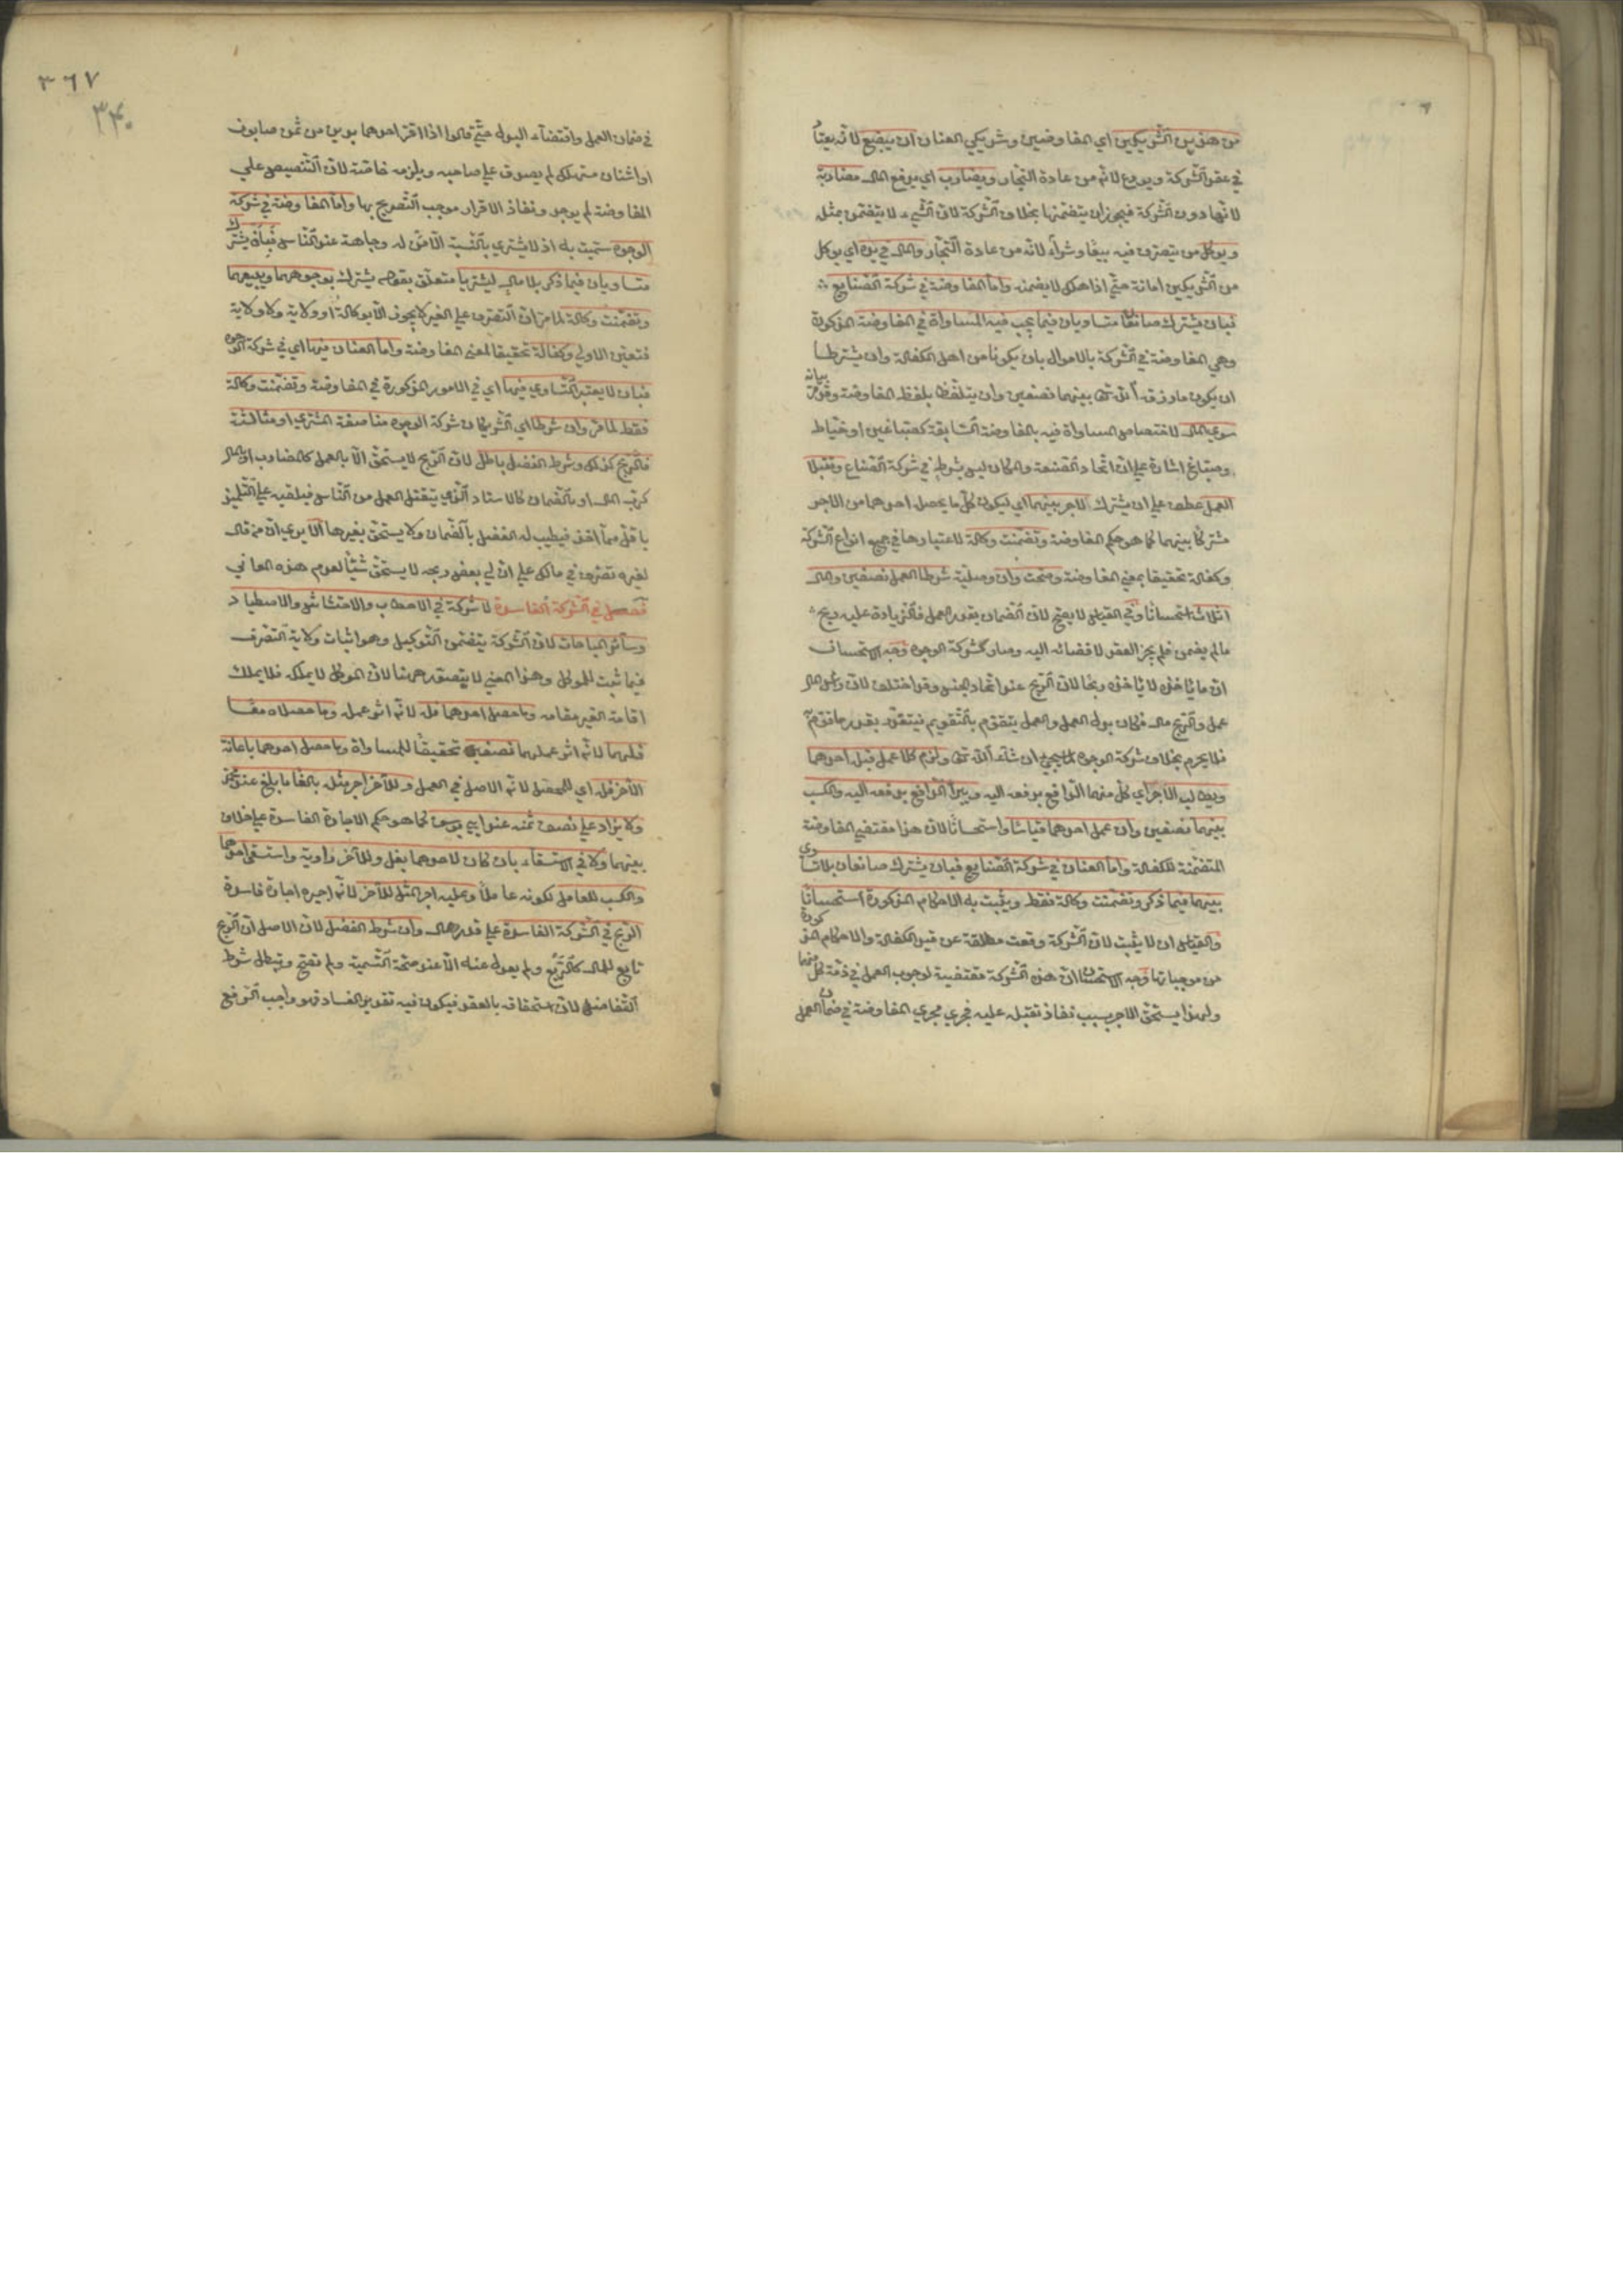 من هذين الشريكين اي المفاوضين وشريكي العنان ان يبضع لانه يعتاد
في عقد الشركة ويودع لانه من عادة التجار ويضارب اي يدفع المال مضاربة
لانها دون الشركة فيجوز ان يتضمنها بخلاف الشركة لان الشيء لا يتضمن مثله
ويوكل من يتصرف فيه بيعا وشراء لانه من عادة التجار والمال في يده اي يد كل
من الشريكين امانة حتى اذا هلك لا يضمنه واما المفاوضة في شركة الصنايع
فبان يشترك صانعان متساويان فيما يجب فيه المساواة في المفاوضة المذكورة
وهي المفاوضة في الشركة بالاموال بان يكونا من اهل الكفالة وان يشترطا
ان يكون ما رزقه الله تعالى بينهما نصفين وان يتلفظا بلفظ المفاوضة وقد مر بيانه
سوى المال لاختصاص المساواة فيه بالمفاوضة السابقة كصباغين او خياط
وصباغ اشارة على ان اتحاد الصنعة والمكان ليس بشرط في شركة الصنايع وتقبلا
العمل عطف على ان يشترك لاجر بينهما اي ليكون كل ما يحصل احدهما من الاجر
مشتركا بينهما كما هو حكم المفاوضة وتضمنت وكالة لاعتبارها في جميع انواع الشركة
وكفالة تحقيقا لمعنى المفاوضة وصحت وان وصلية شرطا العمل نصفين والمال
اثلاثا استحسانا وفي القياس لا يصح لان الضمان بقدر العمل فالزيادة عليه ربح
ما لم يضمن فلم يجز العقد لافضائه اليه وصار كشركة الوجوه وجه الاستحسان
ان ما ياخذه لا ياخذه ربحا لان الربح عند اتحاد الجنس وقد اختلف لان راس المال
عمل والربح مال فكان بدل العمل والعمل يتقوم بالتقويم فيتقدر بقدر ما قوم به
فلا يحرم بخلاف شركة الوجوه لما يجيء ان شاء الله تعالى ولزم كلا عمل قبله احدهما
ويطالب الاجر اي كل منهما الدافع بدفعه اليه ويبرأ الدافع بدفعه اليه والكسب
بينهما نصفين وان عمل احدهما قياسا واستحسانا لان هذا مقتضى المفاوضة
المتضمنة للكفالة واما العنان في شركة الصنايع فبان يشترك صانعان بلا تساوي
بينهما فيما ذكر وتضمنت وكالة فقط ويثبت به الاحكام المذكورة استحسانا
والقياس ان لا يثبت لان الشركة وقعت مطلقة عن قيد الكفالة والاحكام المذكورة
من موجباتها وجه الاستحسان ان هذه الشركة مقتضية لوجوب العمل في ذمة كل منهما
ولهذا يستحق الاجر بسبب نفاذ تقبله عليه فجرى مجرى المفاوضة في ضمان العمل
٣٦٧
٣٤٠
في ضمان العمل واقتضاء البدل حتى قالوا اذا اقر احدهما بدين من ثمن صابون
او اشنان مستهلك لم يصدق على صاحبه ويلزمه خاصة لان التنصيص على
المفاوضة لم يوجد ونفاذ الاقرار موجب التصريح بها واما المفاوضة في شركة
الوجوه سميت به اذ لا يشتري بالنسية الا من له وجاهة عند الناس فبان يشترك
متساويان فيما ذكر بلا مال ليشتريا متعلق بقوله يشترك بوجوههما ويبيعهما
وتضمنت وكالة لما مر ان التصرف على الغير لا يجوز الا بوكالة او ولاية ولا ولاية
فتعين الاولى وكفالة تحقيقا لمعنى المفاوضة واما العنان فيها اي في شركة الوجوه
فبان لا يعتبر التساوي فيها اي في الامور المذكورة في المفاوضة وتضمنت وكالة
فقط لما مر وان شرطا اي الشريكان شركة الوجوه مناصفة المشتري او مثالثته
فالربح كذلك وشرط الفضل باطل لان الربح لا يستحق الا بالعمل كالمضارب او المال
كرب المال او بالضمان كالاستاد الذي يتقبل العمل من الناس فيلقيه على التلميذ
باقل مما اخذ فيطيب له الفضل بالضمان ولا يستحق بغيرها الا يرى ان من قال
لغيره تصرف في مالك على ان لي بعض ربحه لا يستحق شيئا لعدم هذه المعاني
فصل في الشركة الفاسدة لا شركة في الاحتطاب والاحتشاش والاصطياد
وسائر المباحات لان الشركة يتضمن التوكيل وهو اثبات ولاية التصرف
فيما ثبت للموكل وهذا المعنى لا يتصور ههنا لان الموكل لا يملكه فلا يملك
اقامة الغير مقامه وما حصل احدهما فله لانه اثر عمله وما حصلاه معا
فلهما لانه اثر عملهما نصفين تحقيقا للمساواة وما حصل احدهما باعانة
الآخر فله اي للمحصل لانه الاصل في العمل وللآخر اجر مثله بالغا ما بلغ عند محمد
ولا يزاد على نصف ثمنه عند ابي يوسف كما هو حكم الاجارة الفاسدة على خلاف
بينهما ولا في الاستسقاء بان كان لاحدهما بغل وللآخر راوية واستقى احدهما
والكسب للعامل لكونه عاملا وعليه اجر المثل للآخر لانه اجيره اجارة فاسدة
الربح في الشركة الفاسدة على قدر المال وان شرط الفضل لان الاصل ان الربح
تابع للمال كالريع ولم يعدل عنه الا عند صحة التسمية ولم تصح وتبطل شرط
التفاضل لان استحقاقه بالعقد فيكون فيه تقدير الفساد فهو واجب الدفع